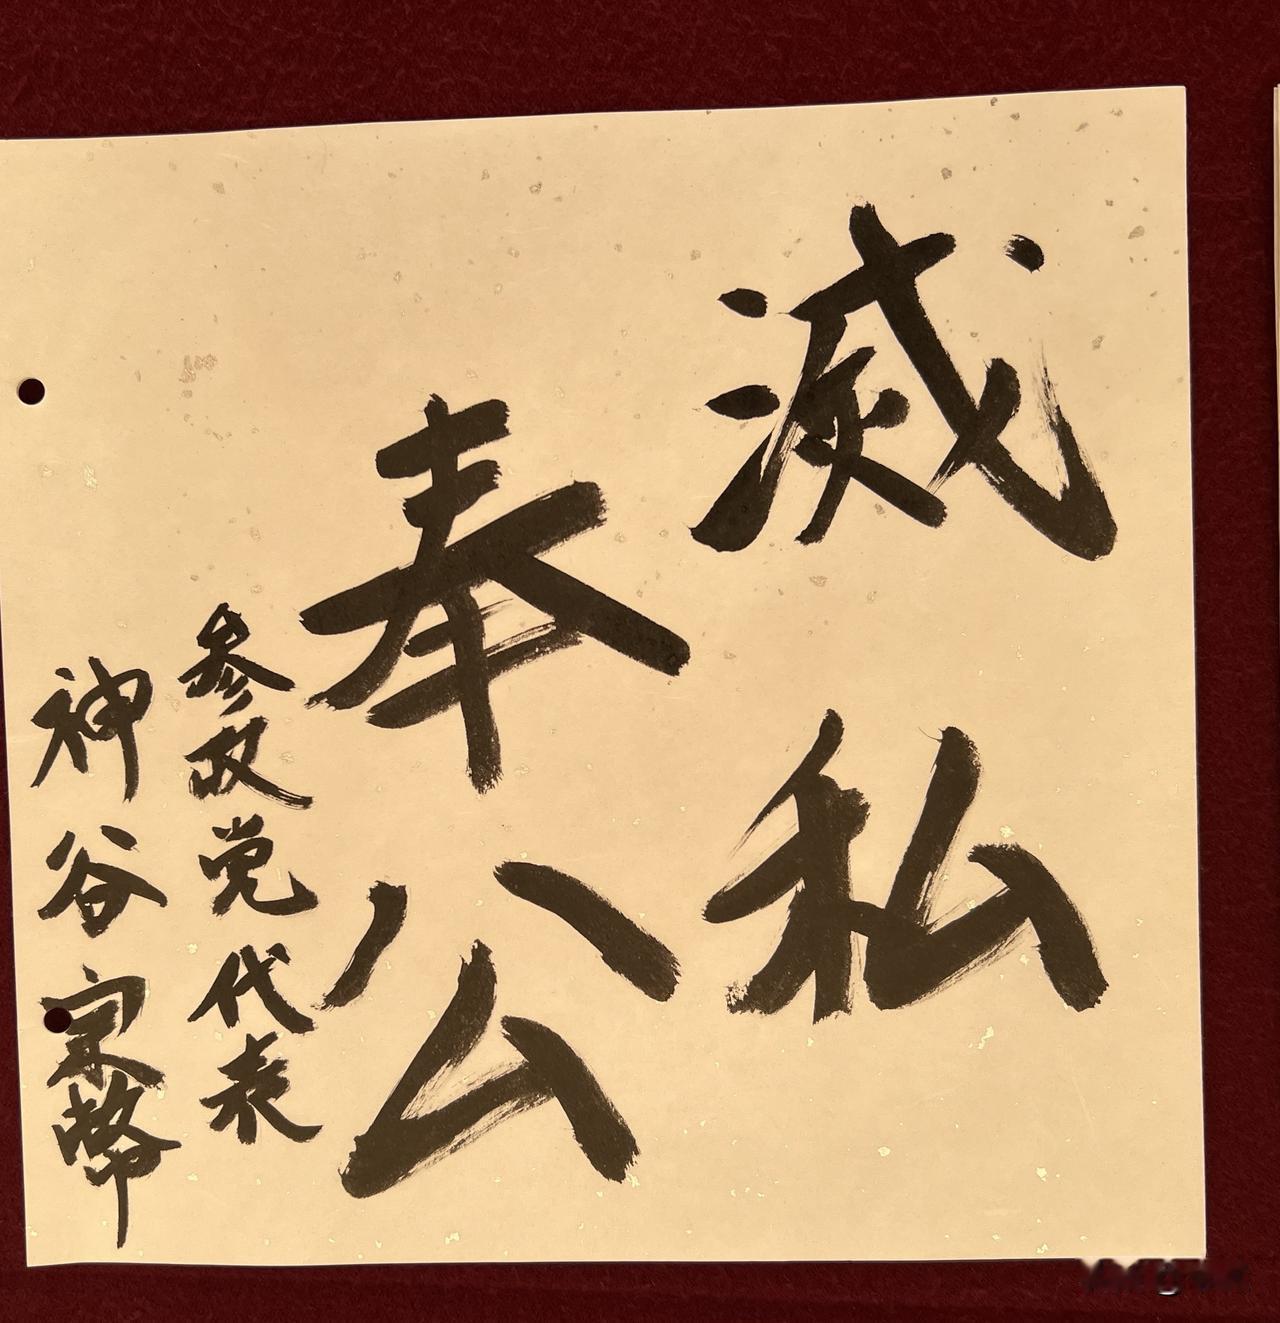 滅私
奉公
参政党代表
神谷宗幣